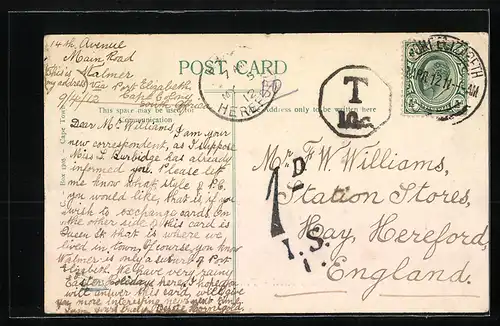 14th Avenue
Main Road
Walmer
via Port Elizabeth
Cape Colony
South Africa
9/4/12
POST CARD
This space may be used for
Communication
Address only to be written here
PORT ELIZABETH
AP 12
T
10c
1D
I.S.
Dear Mr. Williams, I am your
new correspondent, as I suppose
Miss L. Burbidge has already
informed you. Please let
me know what style of P.C.
you would like, that is if you
wish to exchange cards. On
the other side of this card is
Queen St that is where we
lived in town, of course, you know
Walmer is only a suburb of Port
Elizabeth. We have very rainy
Easter holidays here. I hope you
will answer this card, will give
you more interesting news next time.
Mr F. W. Williams,
Station Stores,
Hay, Hereford,
England.